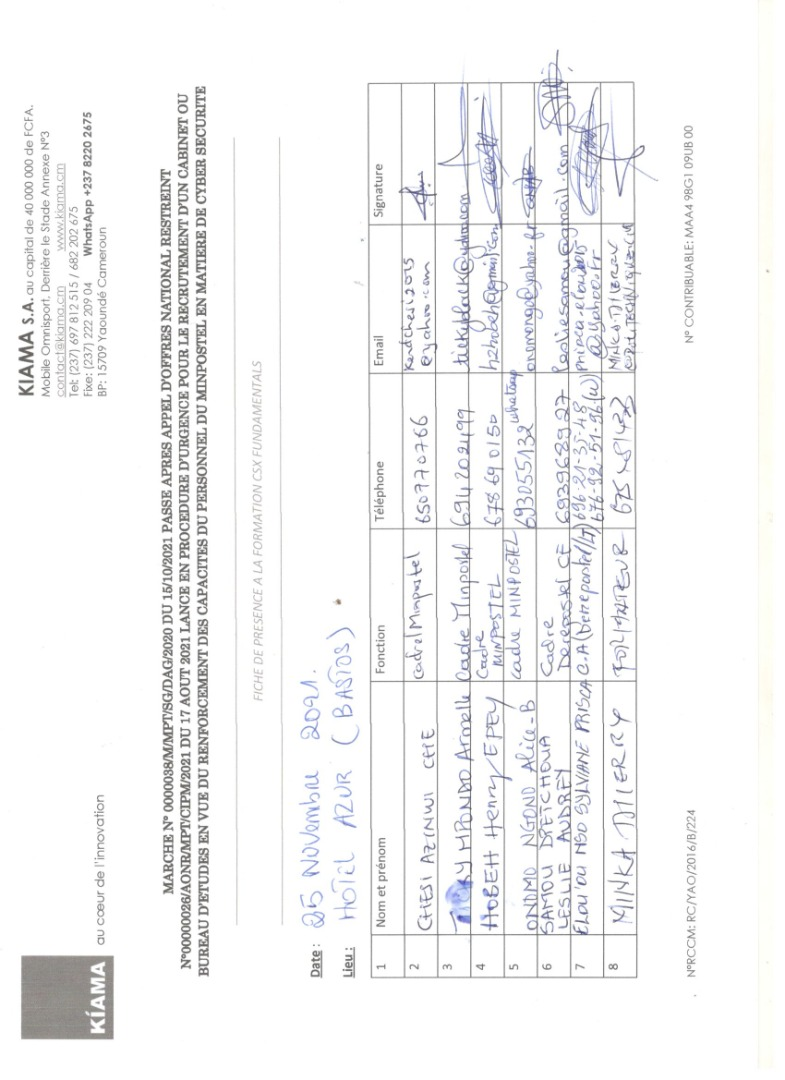 KIAMA
au cœur de l'innovation
KIAMA S.A. au capital de 40 000 000 de FCFA.
Mobile Omnisport, Derrière le Stade Annexe N°3
contact@kiama.cm www.kiama.cm
Tel: (237) 697 812 515 / 682 202 675
Fixe: (237) 222 209 04 WhatsApp +237 8220 2675
BP: 15709 Yaoundé Cameroun
MARCHE N° 0000038/M/MPT/SG/DAG/2020 DU 15/10/2021 PASSE APRES APPEL D'OFFRES NATIONAL RESTREINT
N°00000026/AONR/MPT/CIPM/2021 DU 17 AOUT 2021 LANCE EN PROCEDURE D'URGENCE POUR LE RECRUTEMENT D'UN CABINET OU
BUREAU D'ETUDES EN VUE DU RENFORCEMENT DES CAPACITES DU PERSONNEL DU MINPOSTEL EN MATIERE DE CYBER SECURITE
FICHE DE PRESENCE A LA FORMATION CSX FUNDAMENTALS
Date : 25 Novembre 2021.
Lieu : HOTEL AZUR (BASTOS)
1 Nom et prénom Fonction Téléphone Email Signature
2 CHESI AZINWI CHE Cadre/Minpostel 650770766 Kendchesi2015
@yahoo.com
3 MPONDO Armelle Cadre Minpostel 694202499
4 HOBEH Henry EPEY Cadre
MINPOSTEL 678690150 h2hobeh@gmail.com
5 ONOMO NGONO Alice-B cadre MINPOSTEL 693055132 whatsap onomongo@yahoo.fr
6 SAMOU
LESLIE AUDREY Cadre
CE 693968927 lesliesamou@gmail.com
7 ELOU'OU NSO SYLVIANE PRISCA C.A 696-21-35-48
676-92-51-96(W) @yahoo.fr
8 MINKA THIERRY FORMATEUR
N°RCCM: RC/YAO/2016/B/224
N° CONTRIBUABLE: MAA4 98G1 09UB 00